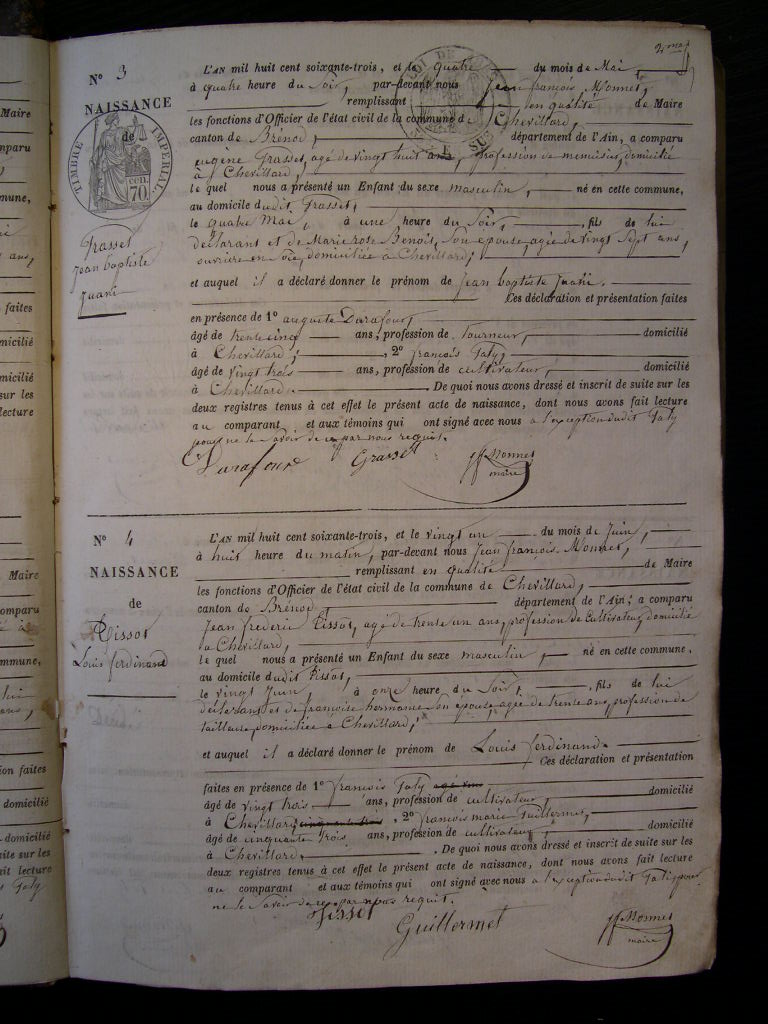 2me
N° 3
NAISSANCE
de
TIMBRE IMPERIAL
70 cen.
Grasset
Jean baptiste
L'AN mil huit cent soixante-trois, et le quatre du mois de Mai,
à quatre heure du Soir, par-devant nous Jean françois Monnet,
remplissant en qualité de Maire
les fonctions d'Officier de l'état civil de la commune de Chevillard,
canton de Brénod, département de l'Ain, a comparu
eugène Grasset, agé de vingt huit ans, profession de menuisier, domicilié
à Chevillard,
le quel nous a présenté un Enfant du sexe masculin, né en cette commune,
au domicile dudit Grasset,
le quatre Mai, à une heure du Soir, fils de lui
déclarant et de Marie rose Benoit, Son épouse, agée de vingt Sept ans,
ouvrière en Soie, domiciliée à Chevillard;
et auquel il a déclaré donner le prénom de Jean baptiste
Ces déclaration et présentation faites
en présence de 1° auguste Darafour,
âgé de trente cinq ans, profession de tourneur, domicilié
à Chevillard; 2° françois Taty,
âgé de vingt trois ans, profession de cultivateur, domicilié
à Chevillard. De quoi nous avons dressé et inscrit de suite sur les
deux registres tenus à cet effet le présent acte de naissance, dont nous avons fait lecture
au comparant et aux témoins qui ont signé avec nous a l'exception dudit Taty
pour ne le Savoir de ce par nous requit.
Darafour Grasset Monnet
maire
N° 4
NAISSANCE
de
Tissot
Louis ferdinand
L'AN mil huit cent soixante-trois, et le vingt un du mois de Juin,
à huit heure du matin, par-devant nous Jean françois Monnet,
remplissant en qualité de Maire
les fonctions d'Officier de l'état civil de la commune de Chevillard,
canton de Brénod département de l'Ain, a comparu
Jean frederic Tissot, agé de trente un ans, profession de Cultivateur, domicilié
à Chevillard,
le quel nous a présenté un Enfant du sexe masculin, né en cette commune,
au domicile dudit Tissot,
le vingt Juin, à onze heure du Soir, fils de lui
déclarant et de françoise hermann Son épouse, agée de trente ans, profession de
tailleuse, domiciliée à Chevillard;
et auquel il a déclaré donner le prénom de Louis ferdinand.
Ces déclaration et présentation
faites en présence de 1° françois Taty
âgé de vingt trois ans, profession de cultivateur domicilié
à Chevillard 2° françois marie Guillermet,
âgé de cinquante trois ans, profession de cultivateur, domicilié
à Chevillard. De quoi nous avons dressé et inscrit de suite sur les
deux registres tenus à cet effet le présent acte de naissance, dont nous avons fait lecture
au comparant et aux témoins qui ont signé avec nous a l'exception dudit Taty pour
ne le Savoir de ce par nous requit.
Tissot
Guillermet Monnet
maire